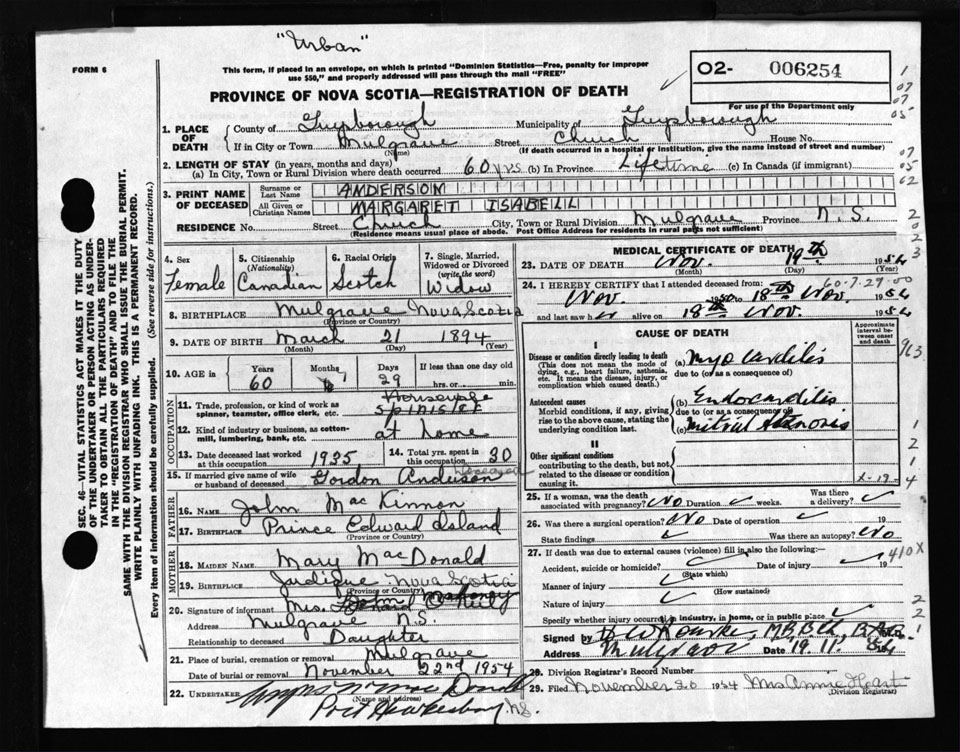 "Urban"
FORM 6
This form, if placed in an envelope, on which is printed "Dominion Statistics—Free, penalty for improper
use $50," and properly addressed will pass through the mail "FREE"
O2- 006254
For use of the Department only
PROVINCE OF NOVA SCOTIA—REGISTRATION OF DEATH
1. PLACE OF DEATH County of Guysborough Municipality of Guysborough
If in City or Town Mulgrave Street Church House No.
(Name) (If death occurred in a hospital or institution, give the name instead of street and number)
2. LENGTH OF STAY (in years, months and days)
(a) In City, Town or Rural Division where death occurred 60 yrs (b) In Province Lifetime (c) In Canada (if immigrant)
3. PRINT NAME OF DECEASED Surname or Last Name ANDERSON
All Given or Christian Names MARGARET ISABELL
RESIDENCE No. Street Church City, Town or Rural Division Mulgrave Province N.S.
(Residence means usual place of abode. Post Office Address for residents in rural parts not sufficient)
4. Sex Female
5. Citizenship (Nationality) Canadian
6. Racial Origin Scotch
7. Single, Married, Widowed or Divorced (write the word) Widow
8. BIRTHPLACE Mulgrave Nova Scotia
(Province or Country)
9. DATE OF BIRTH March 21 1894
(Month) (Day) (Year)
10. AGE in Years 60 Months 7 Days 29 If less than one day old hrs. or min.
OCCUPATION
11. Trade, profession, or kind of work as spinner, teamster, office clerk, etc. Housewife
spinster
12. Kind of industry or business, as cotton-mill, lumbering, bank, etc. at home
13. Date deceased last worked at this occupation 1935
14. Total yrs. spent in this occupation 30
15. If married give name of wife or husband of deceased Gordon Anderson Deceased
FATHER
16. NAME John MacKinnon
17. BIRTHPLACE Prince Edward Island
(Province or Country)
MOTHER
18. MAIDEN NAME Mary MacDonald
19. BIRTHPLACE Judique Nova Scotia
(Province or Country)
20. Signature of informant Mrs.
Address Mulgrave N.S.
Relationship to deceased Daughter
21. Place of burial, cremation or removal Mulgrave
Date of burial or removal November 22nd 1954
22. UNDERTAKER MacDonald
(Name and address)
Port Hawkesbury N.S.
MEDICAL CERTIFICATE OF DEATH
23. DATE OF DEATH Nov. 19th 1954
(Month) (Day) (Year)
24. I HEREBY CERTIFY that I attended deceased from:
60-7-29-00
Nov. to 18th Nov. 1954
and last saw her alive on 18th Nov. 1954
CAUSE OF DEATH
Approximate interval between onset and death
I
Disease or condition directly leading to death
(This does not mean the mode of dying, e.g., heart failure, asthenia, etc. It means the disease, injury, or complication which caused death.)
(a) Myocarditis
due to (or as a consequence of)
Antecedent causes
Morbid conditions, if any, giving rise to the above cause, stating the underlying condition last.
(b) Endocarditis
due to (or as a consequence of)
(c) Mitral Stenosis
II
Other significant conditions
contributing to the death, but not related to the disease or condition causing it.
X-19-
25. If a woman, was the death associated with pregnancy? No Duration weeks. Was there a delivery?
26. Was there a surgical operation? No Date of operation 19
State findings Was there an autopsy? No
27. If death was due to external causes (violence) fill in also the following:— 410X
Accident, suicide or homicide? Date of injury 19
(State which)
Manner of injury
(How sustained)
Nature of injury
Specify whether injury occurred in industry, in home, or in public place
Signed by
Address Mulgrave Date 19.11.54
28. Division Registrar's Record Number
29. Filed November 20 1954 Mrs Annie
(Division Registrar)
SEC. 46—VITAL STATISTICS ACT MAKES IT THE DUTY
OF THE UNDERTAKER OR PERSON ACTING AS UNDER-
TAKER TO OBTAIN ALL THE PARTICULARS REQUIRED
IN THE "REGISTRATION OF DEATH" AND TO FILE THE
SAME WITH THE DIVISION REGISTRAR WHO SHALL ISSUE THE BURIAL PERMIT.
WRITE PLAINLY WITH UNFADING INK. THIS IS A PERMANENT RECORD.
Every item of information should be carefully supplied. (See reverse side for instructions.)